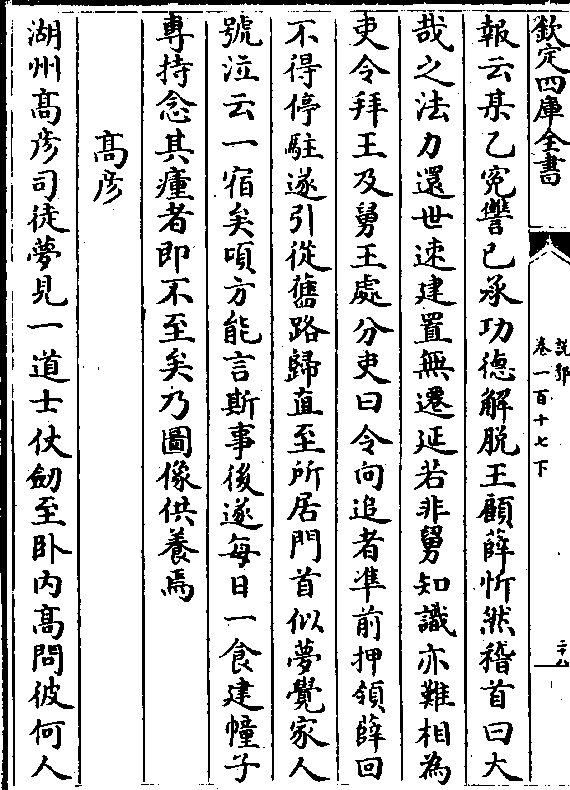 欽定四庫全書
說郛
卷一百十七下
二十八
報云某乙寃讐已承功德解脱王顧薛忻然稽首曰大
哉之法力還世速建置無遷延若非舅知識亦難相為
吏令拜王及舅王處分吏曰令向追者準前押領薛回
不得停駐遂引從舊路歸直至所居門首似夢覺家人
號泣云一宿矣頃方能言斯事後遂每日一食建幢子
專持念其瘇者即不至矣乃圖像供養焉
高彦
湖州高彦司徒夢見一道士仗劒至卧内高問彼何人